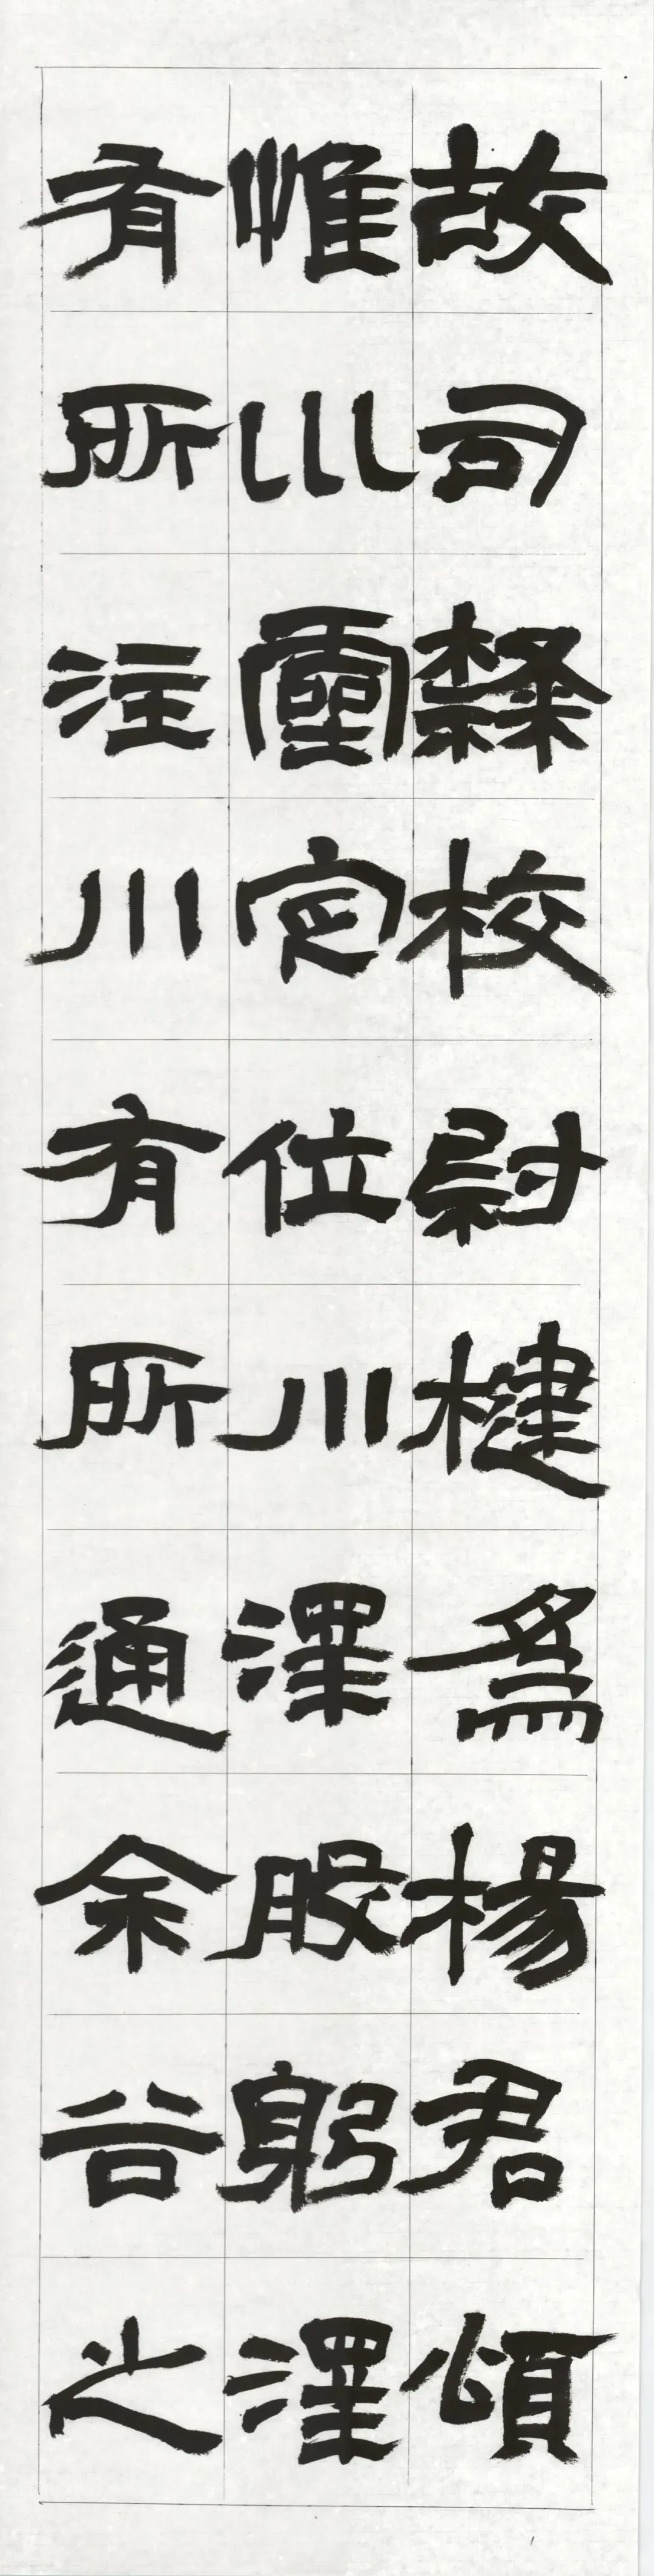 故司隸校尉楗爲楊君頌
惟巛靈定位川澤股躬澤
有所注川有所通余谷之